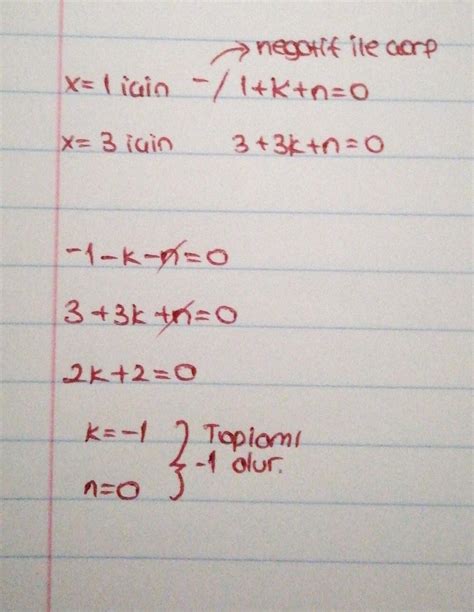 negatif ile çarp
x=1 için -/ 1+k+n=0
x=3 için 3+3k+n=0
-1-k-n=0
3+3k+n=0
2k+2=0
k=-1
n=0
Toplamı
-1 olur.